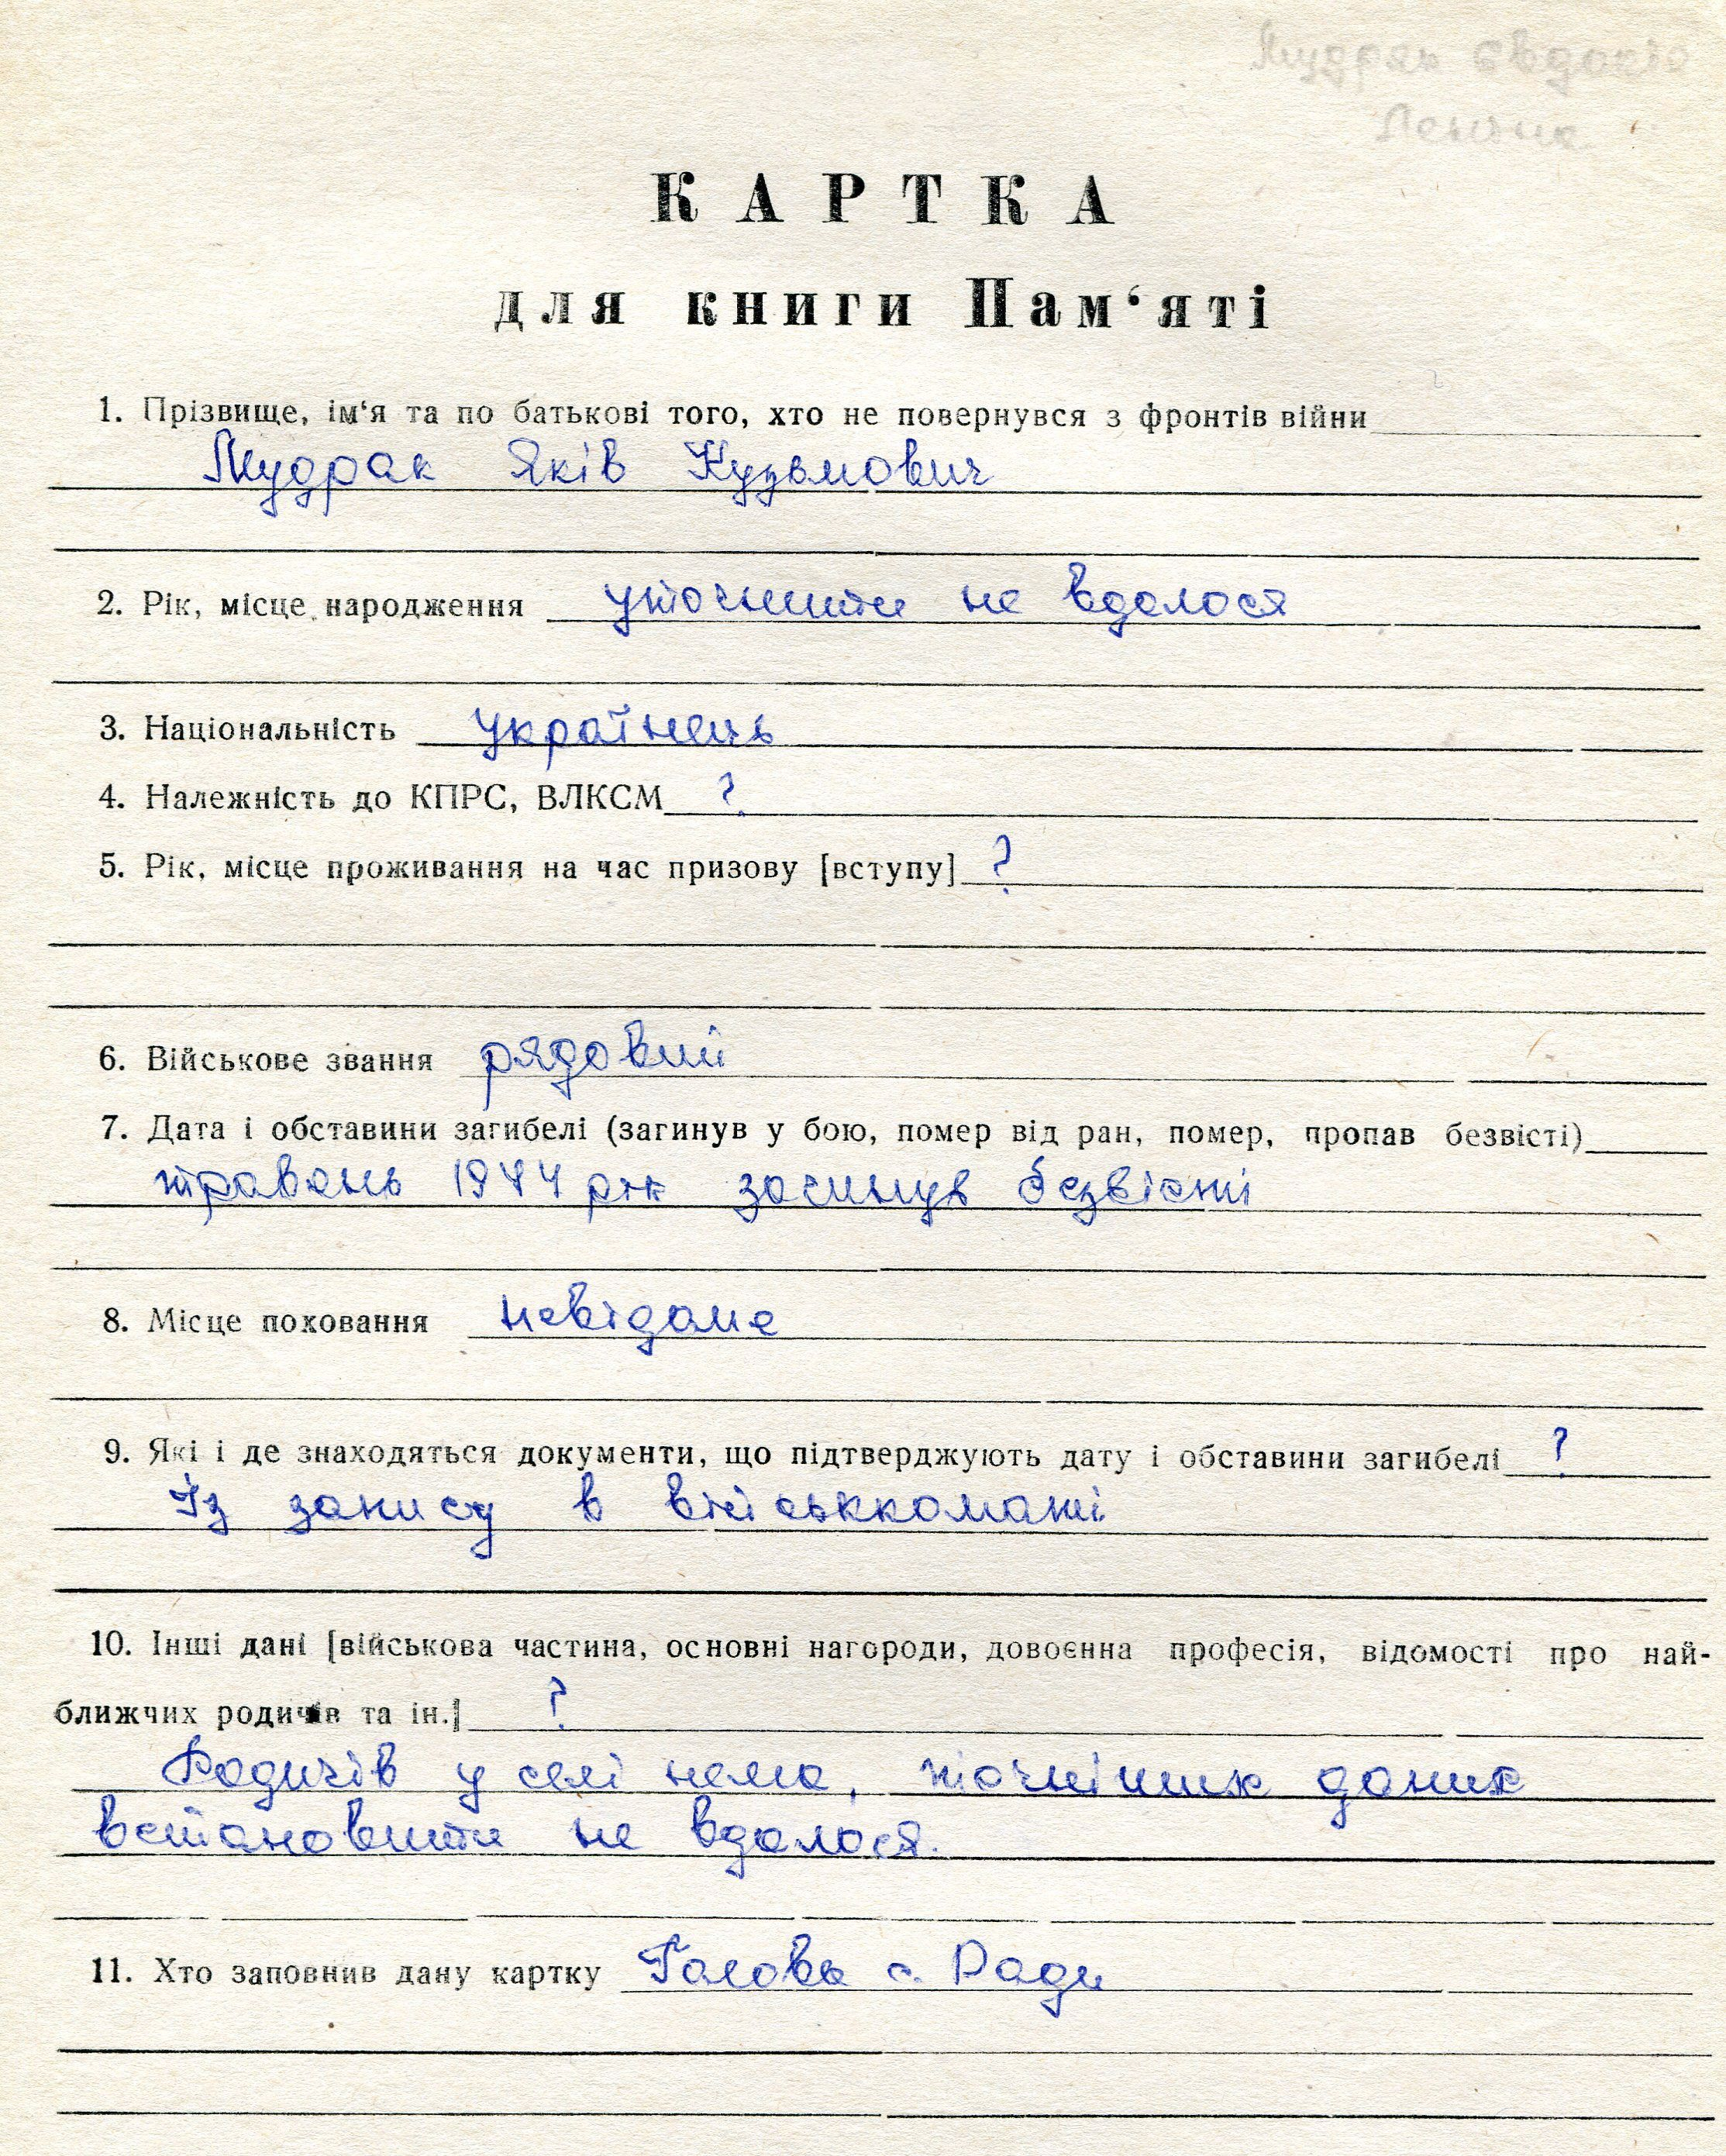 Мудрак Явдокія
КАРТКА
для книги Пам‘яті
1. Прізвище, ім‘я та по батькові того, хто не повернувся з фронтів війни
Мудрак Яків Кузьмович
2. Рік, місце народження уточнити не вдалося
3. Національність українець
4. Належність до КПРС, ВЛКСМ ?
5. Рік, місце проживання на час призову [вступу] ?
6. Військове звання рядовий
7. Дата і обставини загибелі (загинув у бою, помер від ран, помер, пропав безвісті)
травень 1944 рік загинув безвісті
8. Місце поховання невідоме
9. Які і де знаходяться документи, що підтверджують дату і обставини загибелі ?
Із запису в військкоматі
10. Інші дані [військова частина, основні нагороди, довоєнна професія, відомості про най-
ближчих родичів та ін.] ?
Родичів у селі нема, точніших даних
встановити не вдалося.
11. Хто заповнив дану картку Голова с. Ради